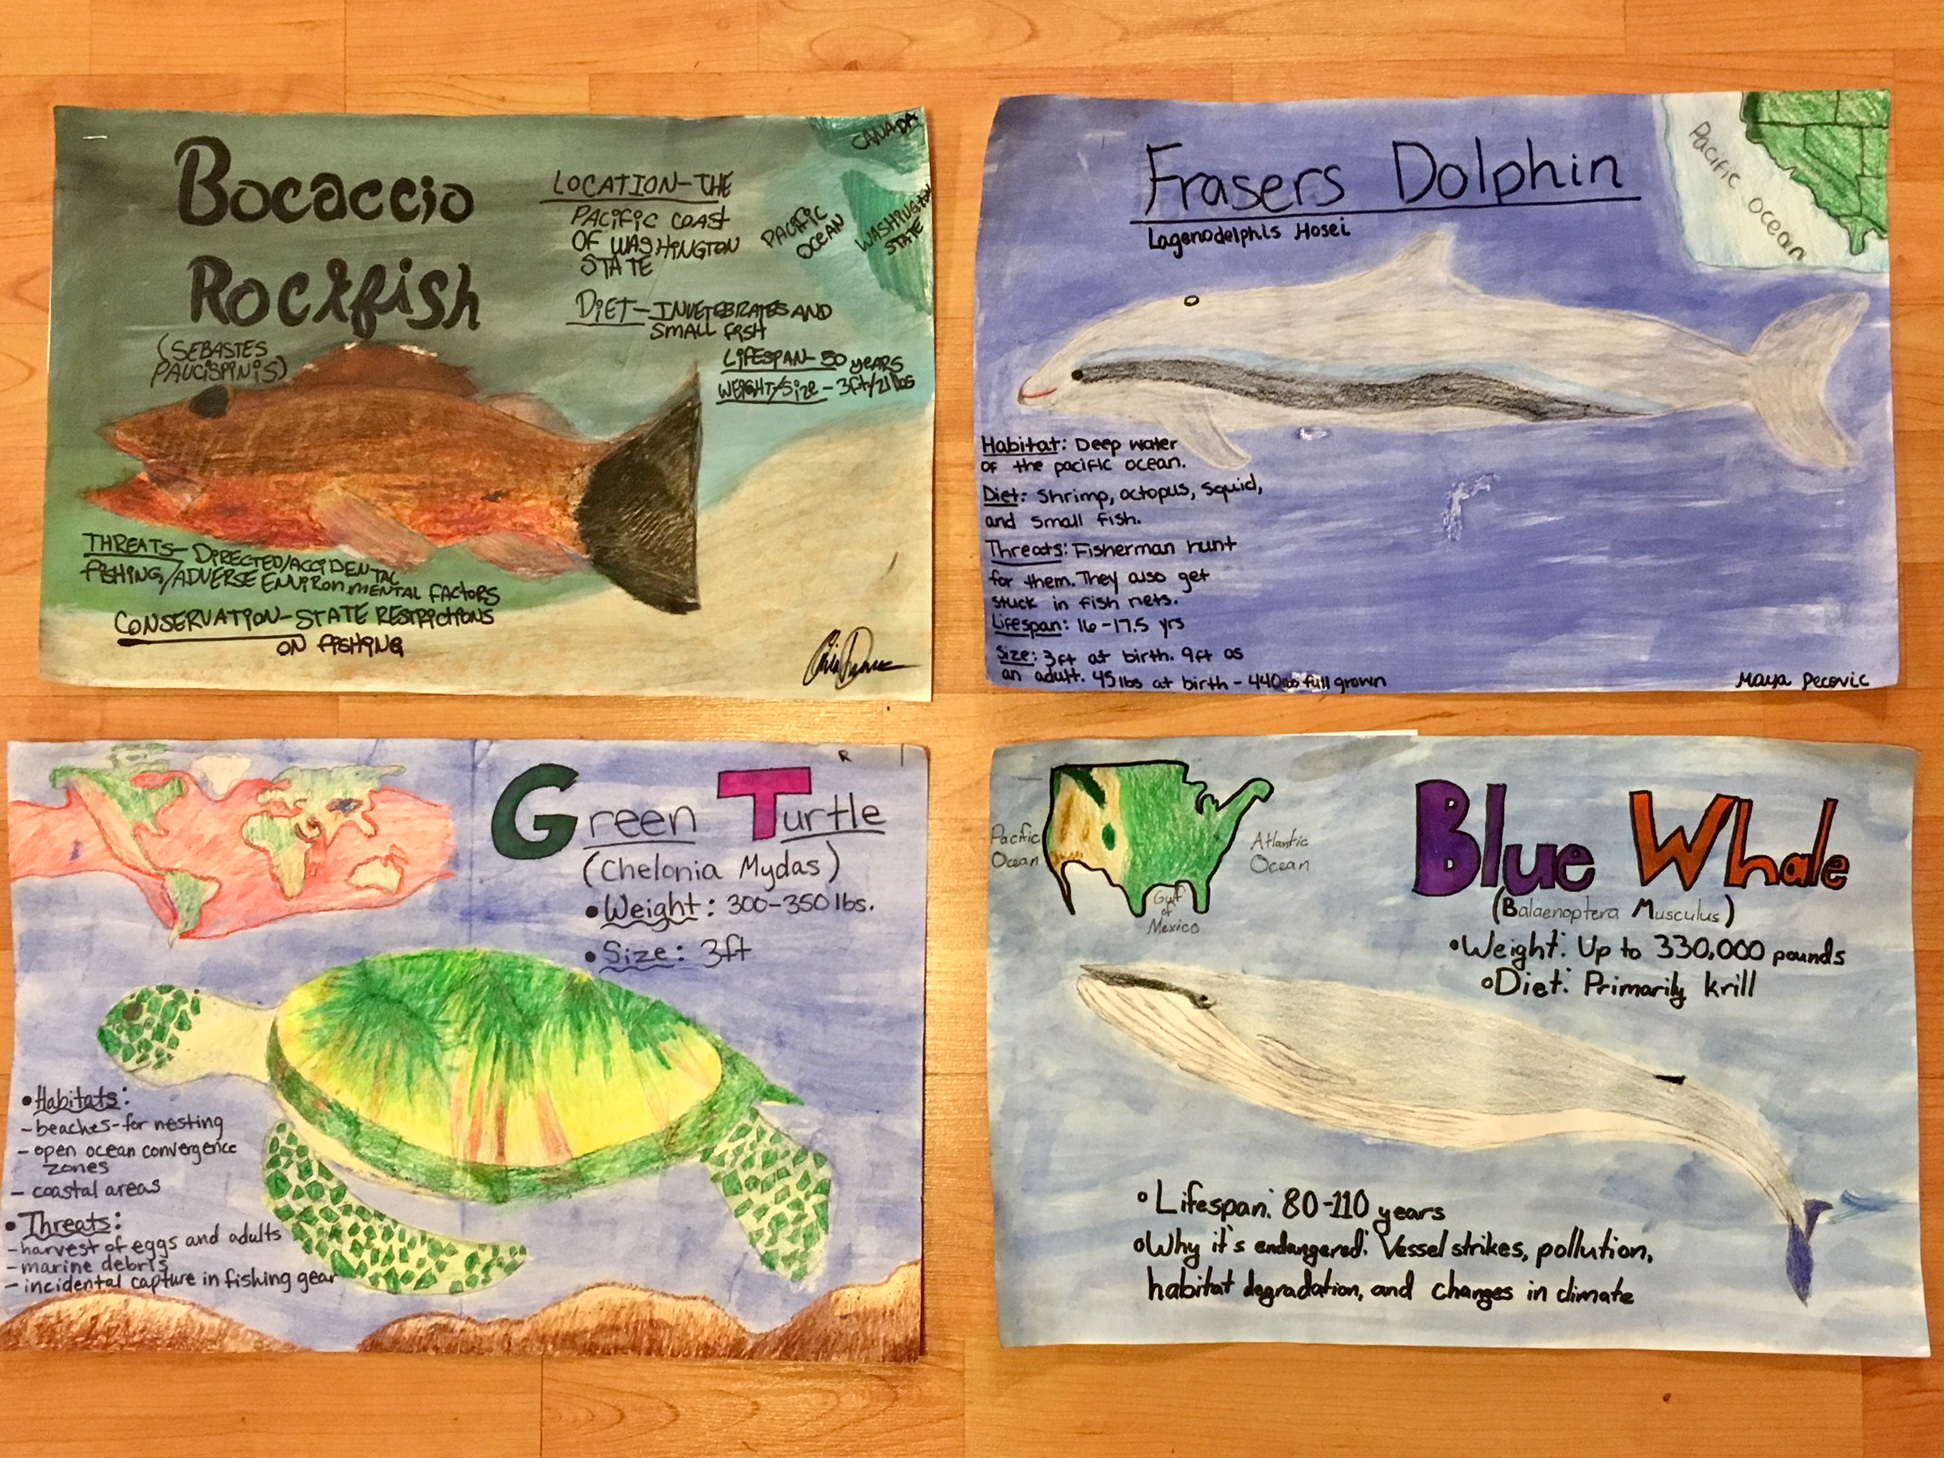 Bocaccio
Rockfish
(SEBASTES
PAUCISPINIS)
LOCATION-THE
PACIFIC COAST
OF WASHINGTON
STATE
DIET-INVETEBRATES AND
SMALL FISH
LIFESPAN-50 YEARS
WEIGHT/SIZE-3ft/21lbs
CANADA
PACIFIC
OCEAN
WASHINGTON
STATE
THREATS-DIRECTED/ACCIDENTAL
FISHING/ADVERSE ENVIRONMENTAL FACTORS
CONSERVATION-STATE RESTRICTIONS
ON FISHING
Frasers Dolphin
Lagenodelphis Hosei
Pacific Ocean
Habitat: Deep water
of the pacific ocean.
Diet: Shrimp, octopus, squid,
and small fish.
Threats: Fisherman hunt
for them. They also get
stuck in fish nets.
Lifespan: 16-17.5 yrs
Size: 3ft at birth. 9ft as
an adult. 45lbs at birth - 440lbs full grown
Maya Pecovic
R
Green Turtle
(Chelonia Mydas)
•Weight: 300-350lbs.
•Size: 3ft
•Habitats:
-beaches-for nesting
-open ocean convergence
zones
-coastal areas
•Threats:
-harvest of eggs and adults
-marine debris
-incidental capture in fishing gear
Pacific
Ocean
Atlantic
Ocean
Gulf
of
Mexico
Blue Whale
(Balaenoptera Musculus)
•Weight: Up to 330,000 pounds
•Diet: Primarily krill
•Lifespan: 80-110 years
•Why it's endangered: Vessel strikes, pollution,
habitat degradation, and changes in climate